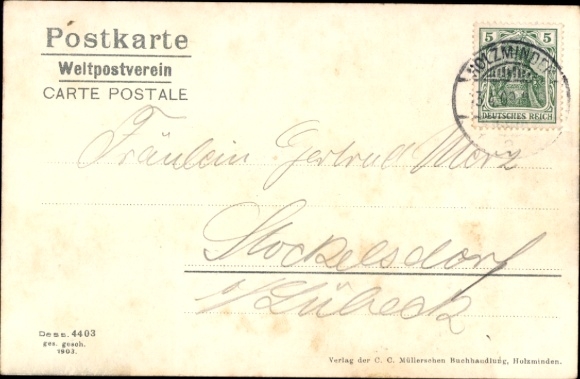 Postkarte
Weltpostverein
CARTE POSTALE
5 5
DEUTSCHES REICH
HOLZMINDEN
Fräulein Gertrud Merz
Stockelsdorf
b/Lübeck
Dess. 4403
ges. gesch.
1903.
Verlag der C. C. Müllerschen Buchhandlung, Holzminden.